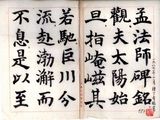 孟法師碑銘
觀夫太陽始
旦指崦嵫其
若馳巨川分
流赴渤澥而
不息是以至